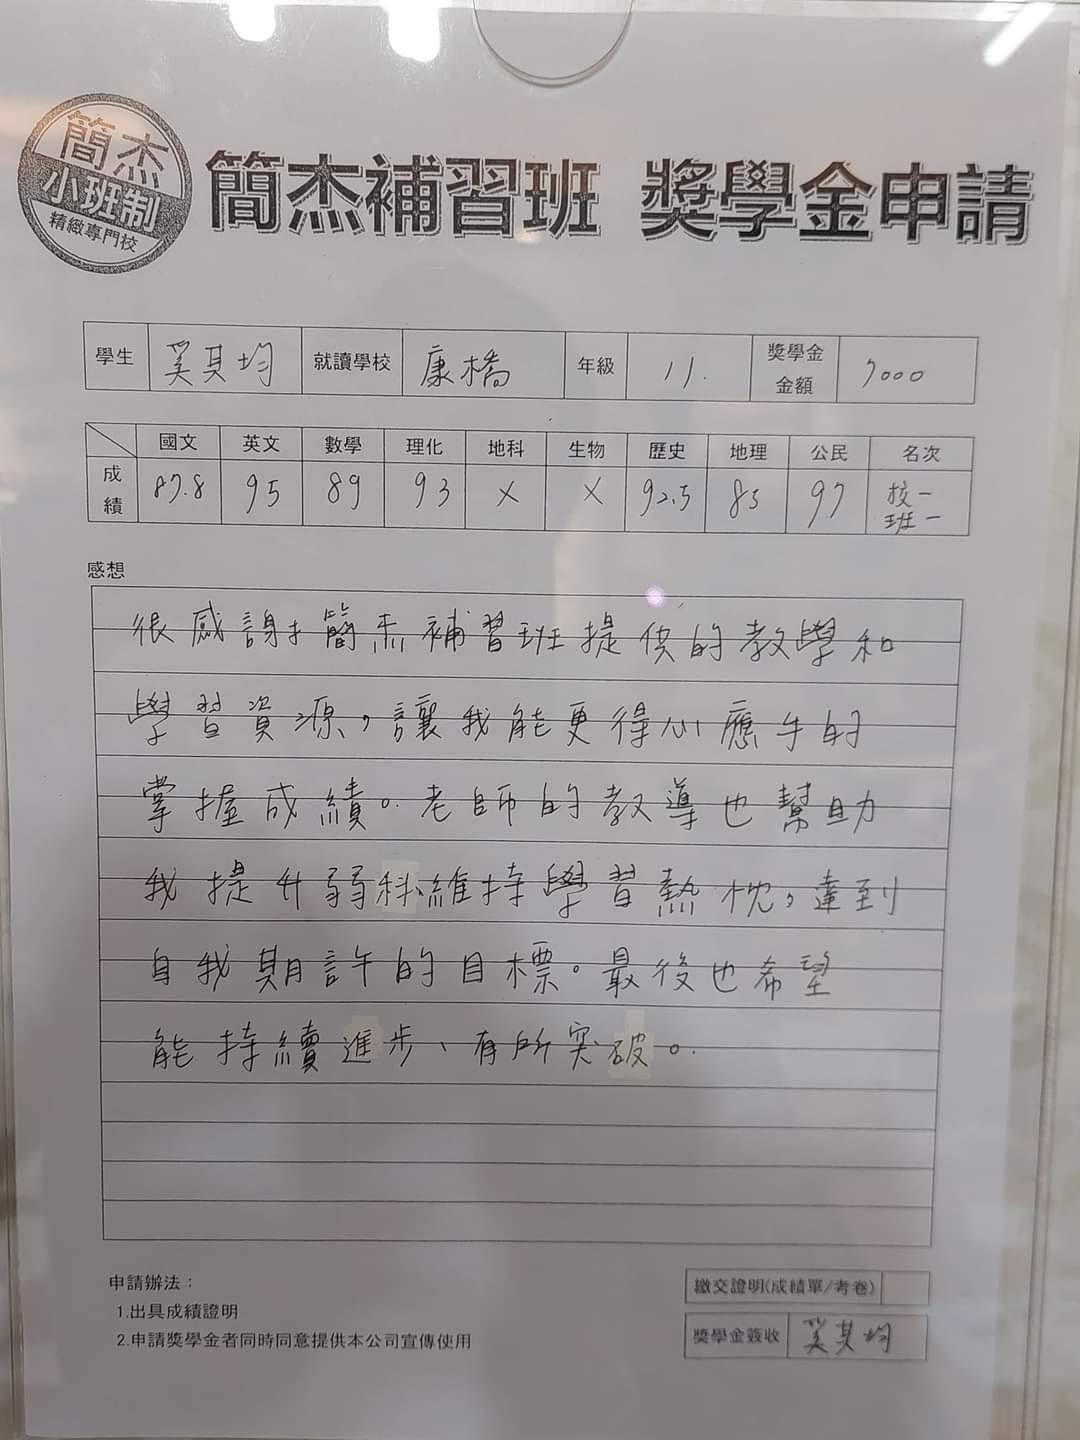 簡杰
小班制
精緻專門校
簡杰補習班 獎學金申請
學生 奚其均 就讀學校 康橋 年級 11. 獎學金金額 7000
國文 英文 數學 理化 地科 生物 歷史 地理 公民 名次
成績 87.8 95 89 93 X X 92.5 85 97 校一 班一
感想
很感謝簡杰補習班提供的教學和
學習資源,讓我能更得心應手的
掌握成績。老師的教導也幫助
我提升弱科、維持學習熱忱,達到
自我期許的目標。最後也希望
能持續進步、有所突破。
申請辦法:
1.出具成績證明
2.申請獎學金者同時同意提供本公司宣傳使用
繳交證明(成績單/考卷)
獎學金簽收 奚其均